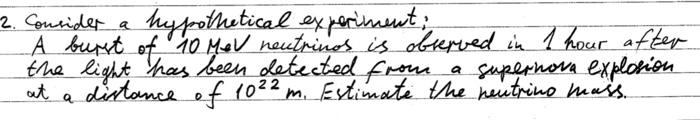 2. Consider a hypothetical experiment:
A burst of 10 MeV neutrinos is observed in 1 hour after
the light has been detected from a supernova explosion
at a distance of 10²² m. Estimate the neutrino mass.